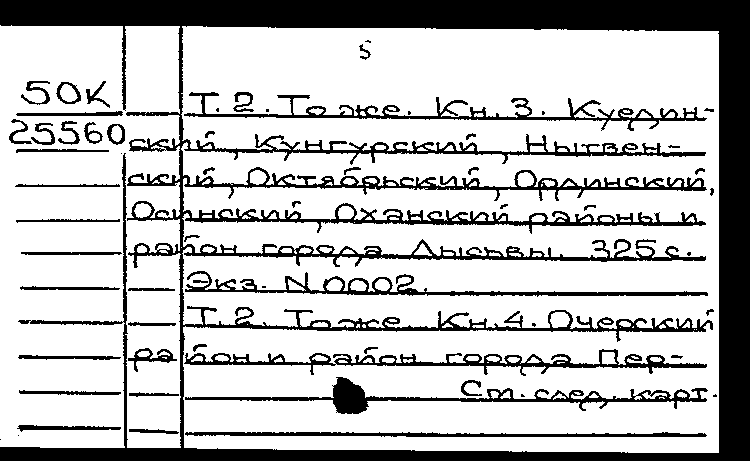 5
50К
Т. 2. То же. Кн. 3. Куедин-
25560
ский, Кунгурский, Нытвен-
ский, Октябрьский, Ординский,
Осинский, Оханский районы и
район города Лысьвы. 325 с.
Экз. N 0002.
Т. 2. То же. Кн. 4. Очерский
район и район города Пер-
См. след. карт.